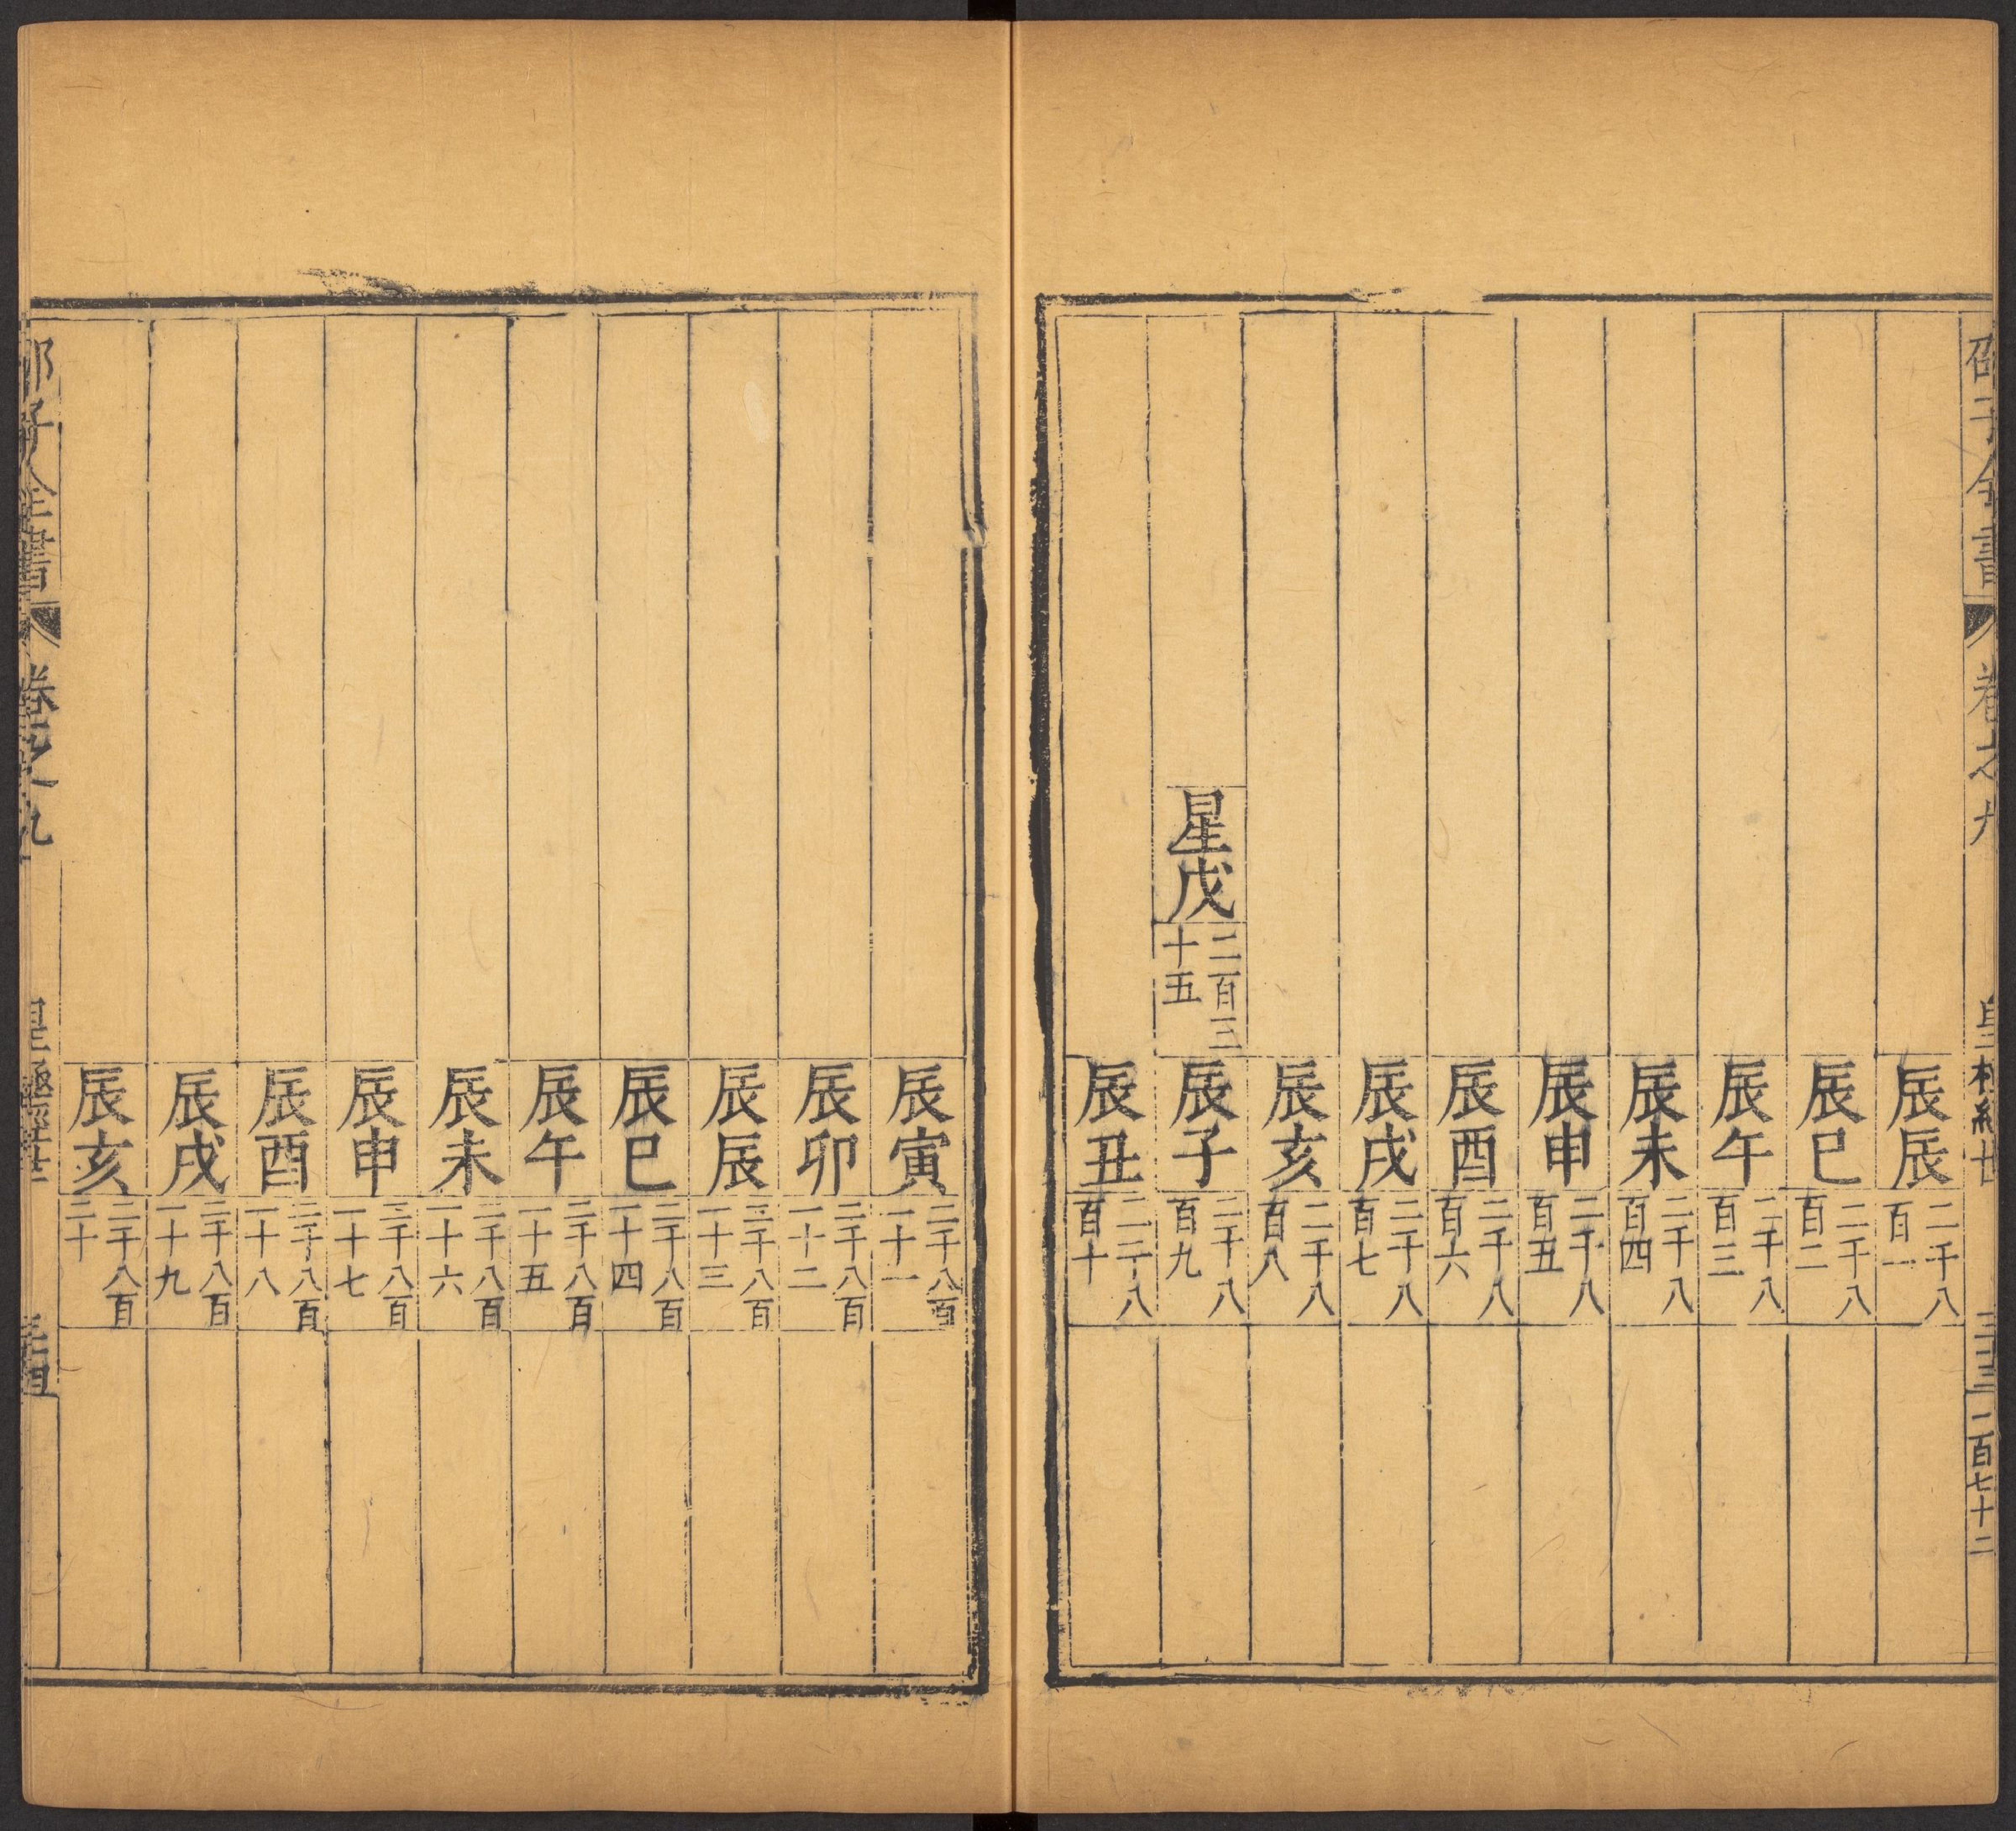 邵子全書
卷之九
二百七十二
辰辰 二千八百一
辰巳 二千八百二
辰午 二千八百三
辰未 二千八百四
辰申 二千八百五
辰酉 二千八百六
辰戌 二千八百七
辰亥 二千八百八
星戊 二百三十五 辰子 二千八百九
辰丑 二千八百十
辰寅 二千八百一十一
辰卯 二千八百一十二
辰辰 二千八百一十三
辰巳 二千八百一十四
辰午 二千八百一十五
辰未 二千八百一十六
辰申 二千八百一十七
辰酉 二千八百一十八
辰戌 二千八百一十九
辰亥 二千八百二十
邵子全書
卷之九